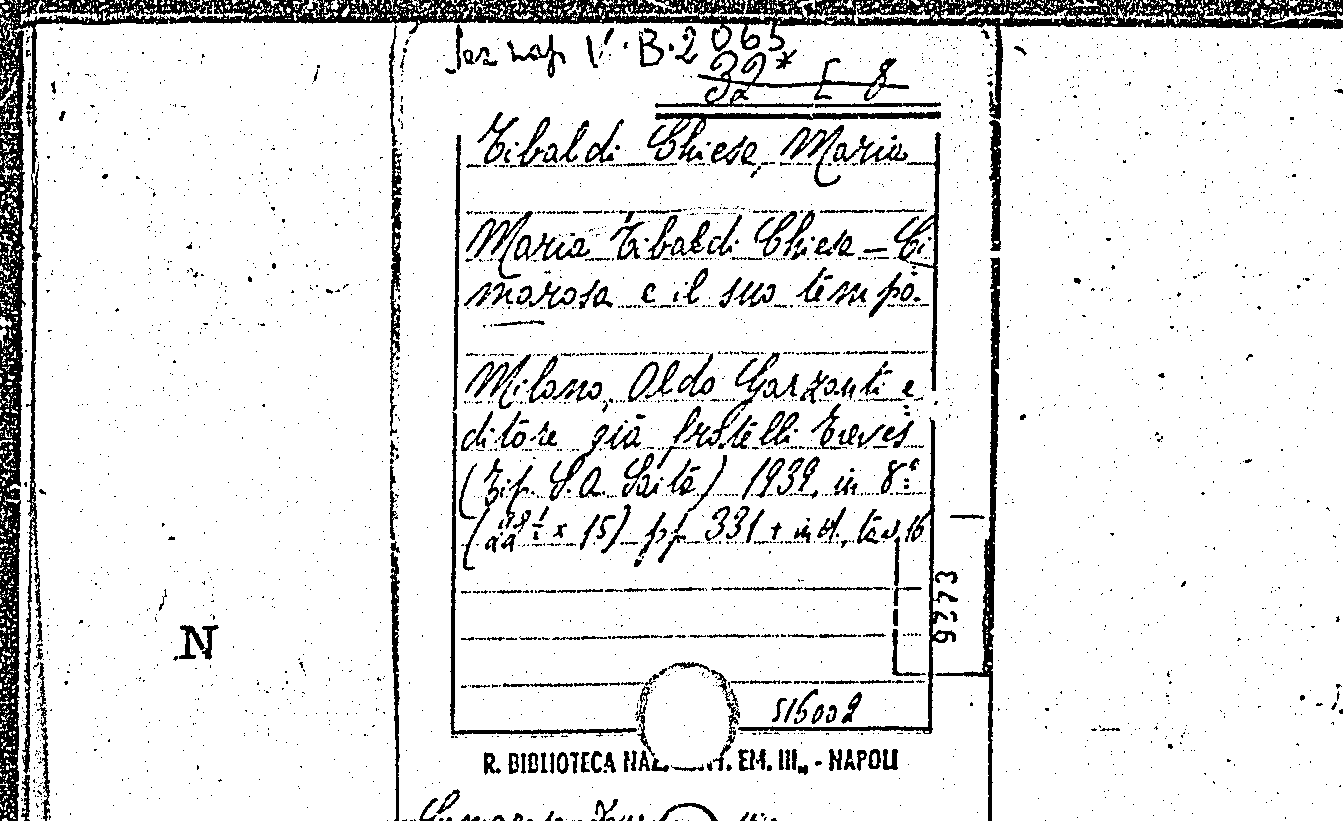 Sez nap V. B. 2065
32* E 8
Tibaldi Chiesa, Maria
Maria Tibaldi Chiesa — Ci
marosa e il suo tempo.
Milano, Aldo Garzanti e
ditore già fratelli Treves
(Tip. S. A. Saita) 1939, in 8°
(22 ½ x 15) pp. 331 + ind., tav. 16
9373
N
515002
R. BIBLIOTECA NAZ. EM. III„ - NAPOLI